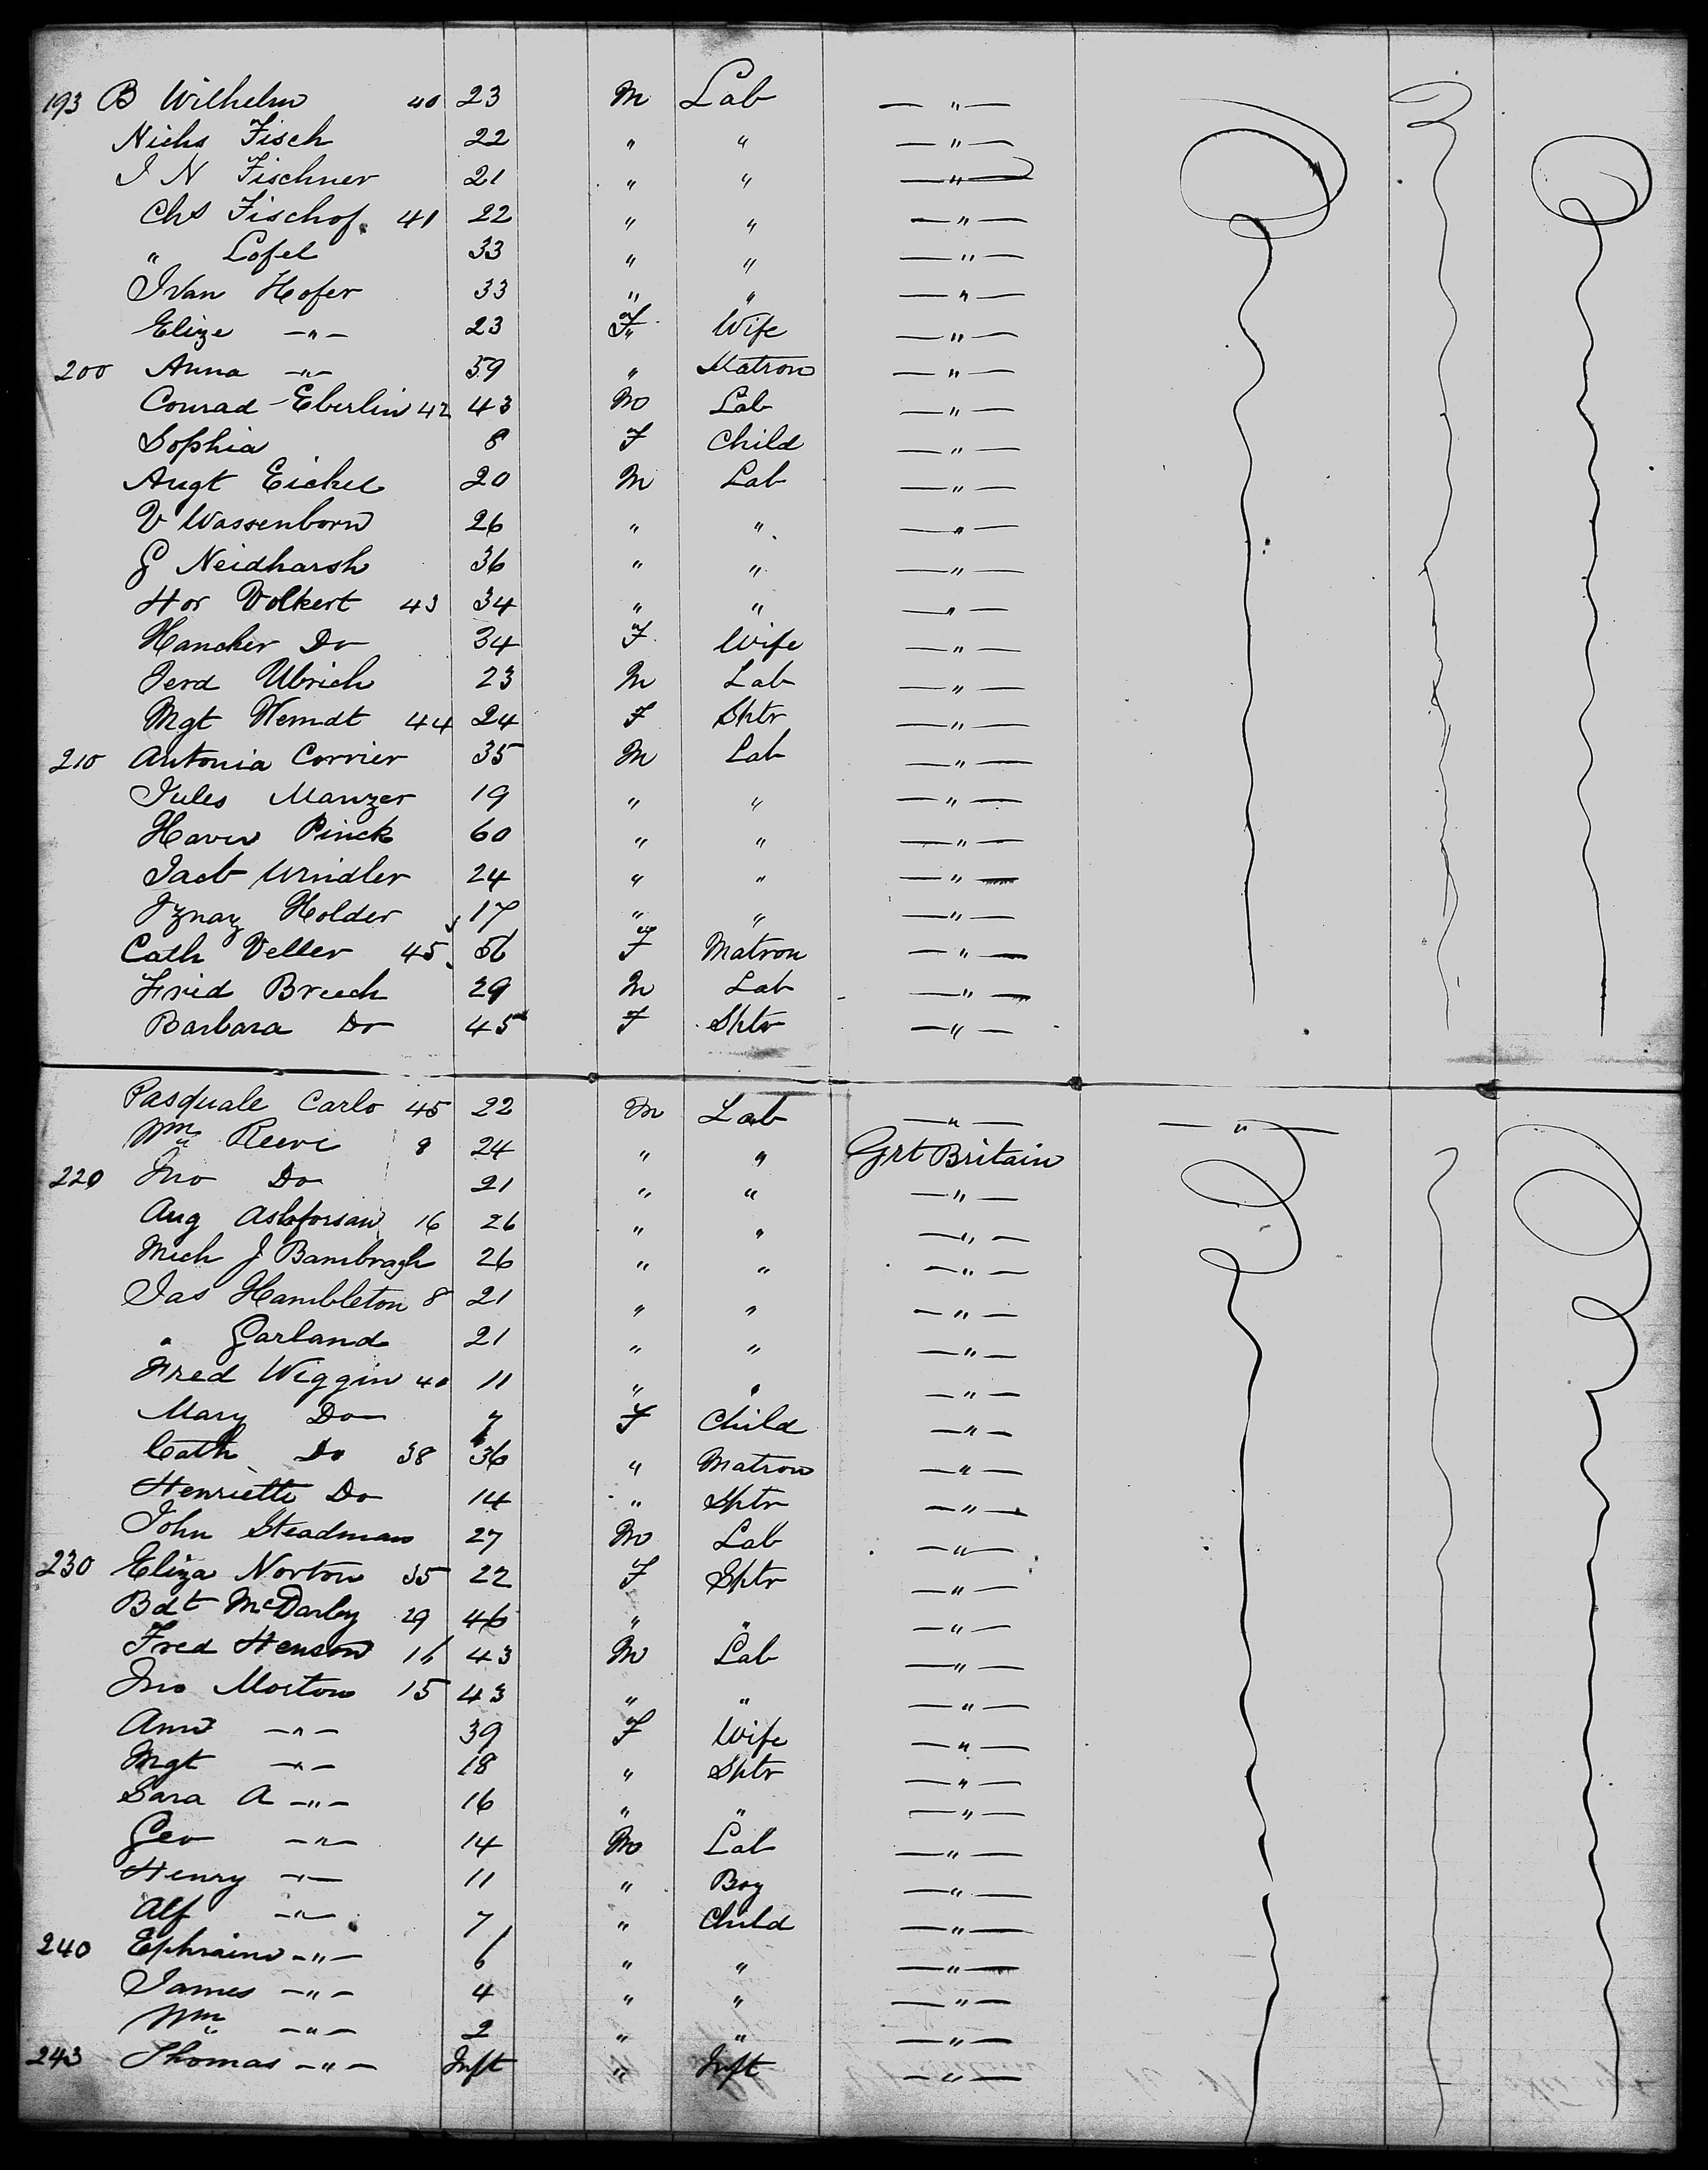 193 B Wilhelm 40 23 M Lab — " —
Nichs Fisch 22 " " — " —
J N Fischner 21 " " — " —
Chs Fischof 41 22 " " — " —
" Lofel 33 " " — " —
Ivan Hofer 33 " " — " —
Elize — " — 23 F Wife — " —
200 Anna — " — 59 " Matron — " —
Conrad Eberlin 42 43 M Lab — " —
Sophia 8 F Child — " —
Augt Eickel 20 M Lab — " —
V Wassenborn 26 " " — " —
G Neidharsh 36 " " — " —
Hor Volkert 43 34 " " — " —
Hancher Do 34 F Wife — " —
Ferd Ulrich 23 M Lab — " —
Mgt Werndt 44 24 F Sptr — " —
210 Antonia Corrier 35 M Lab — " —
Jules Manzer 19 " " — " —
Haver Pinck 60 " " — " —
Jacb Windler 24 " " — " —
Holder 17 " " — " —
Cath Veller 45 56 F Matron — " —
Frid Breech 29 M Lab — " —
Barbara Do 45 F Sptr — " —
Pasquale Carlo 45 22 M Lab — " — — " —
Wm Reeve 8 24 " " Grt Britain
220 Jno Do 21 " " — " —
Aug 16 26 " " — " —
Mich J Bambragh 26 " " — " —
Jas Hambleton 8 21 " " — " —
" Garland 21 " " — " —
Fred Wiggin 40 11 " " — " —
Mary Do 7 F Child — " —
Cath Do 38 36 " Matron — " —
Henriette Do 14 " Sptr — " —
John Steadman 27 M Lab — " —
230 Eliza Norton 35 22 F Sptr — " —
Bdt McDarby 29 46 " " — " —
Fred Henson 16 43 M Lab — " —
Jno Morton 15 43 " " — " —
Ann — " — 39 F Wife — " —
Mgt — " — 18 " Sptr — " —
Sara A — " — 16 " " — " —
Geo — " — 14 M Lab — " —
Henry — " — 11 " Boy — " —
Alf — " — 7 " Child — " —
240 Ephraim — " — 6 " " — " —
James — " — 4 " " — " —
Wm — " — 2 " " — " —
243 Thomas — " — Inft " Inft — " —